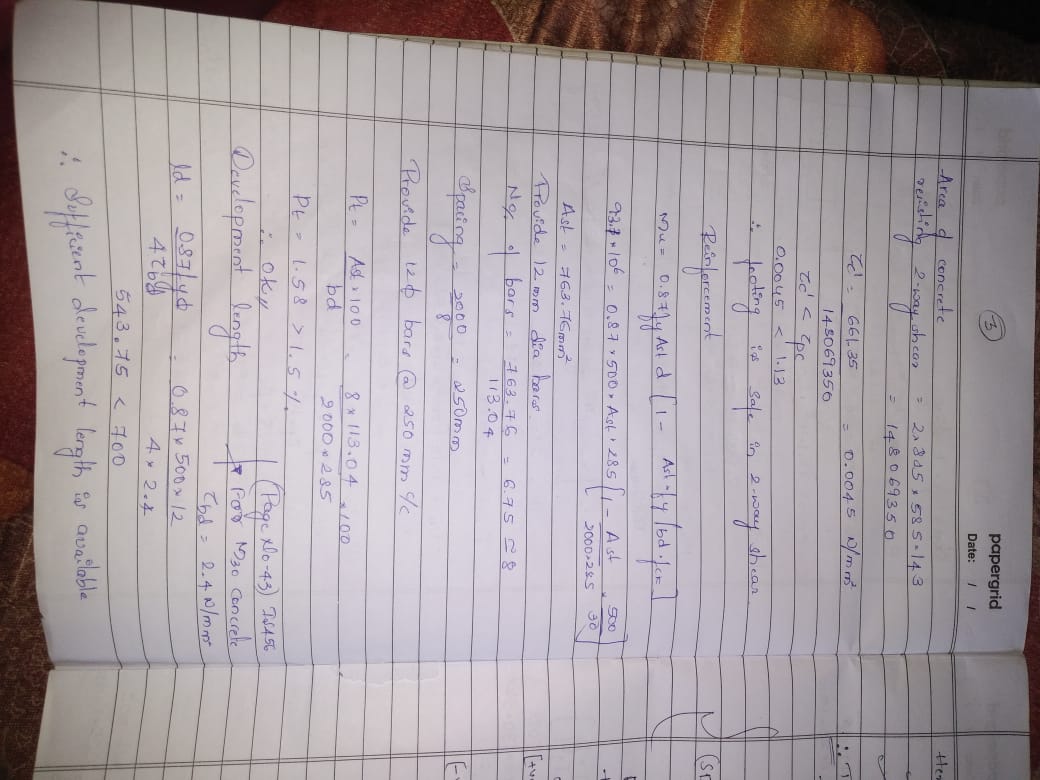 papergrid
Date: / /
3
Area of concrete
resisting 2-way shear = 2×825×585×143
= 148069350
τc' = 661.35 / 148069350 = 0.0045 N/mm²
τc' < τpc
0.0045 < 1.13
∴ footing is safe in 2-way shear
Reinforcement
Mu = 0.87fy Ast d [1 - Ast×fy / bd×fck]
93.7×10⁶ = 0.87×500×Ast×285 [1 - Ast / 2000×285 × 500 / 30]
Ast = 763.76mm²
Provide 12mm dia bars
No. of bars = 763.76 / 113.04 = 6.75 ≅ 8
Spacing = 2000 / 8 = 250mm
Provide 12ɸ bars @ 250mm c/c
Pt = Ast×100 / bd = 8×113.04 / 2000×285 ×100
Pt = 1.58 > 1.5 %
∴ ok,,
(Page No-43) IS456
Development length
For M30 concrete
τbd = 2.4 N/mm²
ld = 0.87fyɸ / 4τbd = 0.87×500×12 / 4×2.4
543.75 < 700
∴ Sufficient development length is available